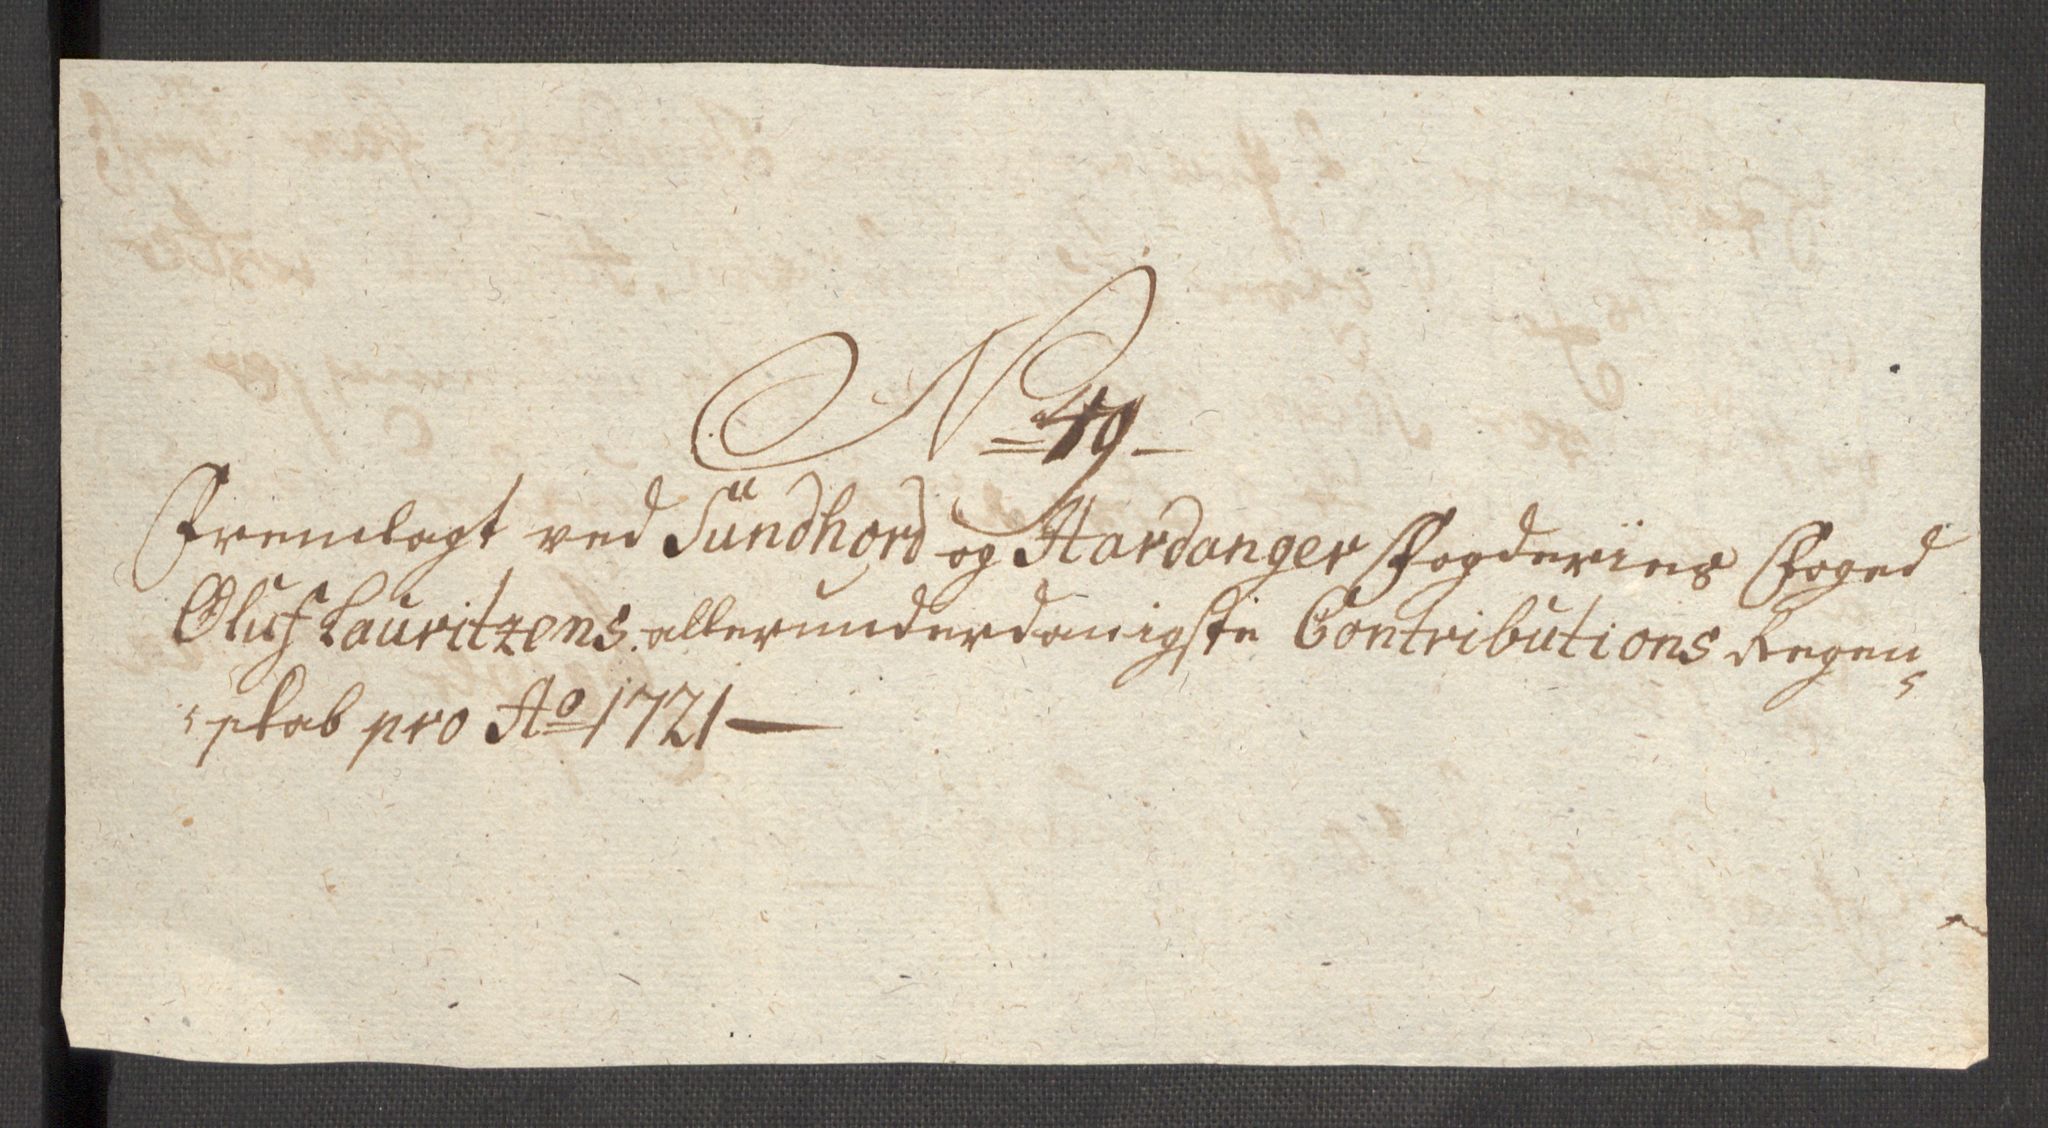 No 49
Fremlagt ved Sundhord og Hardanger Fogderies Foged
Oluf Lauritzens allerunderdanigste Contributions Regen-
skab pro Ao 1721